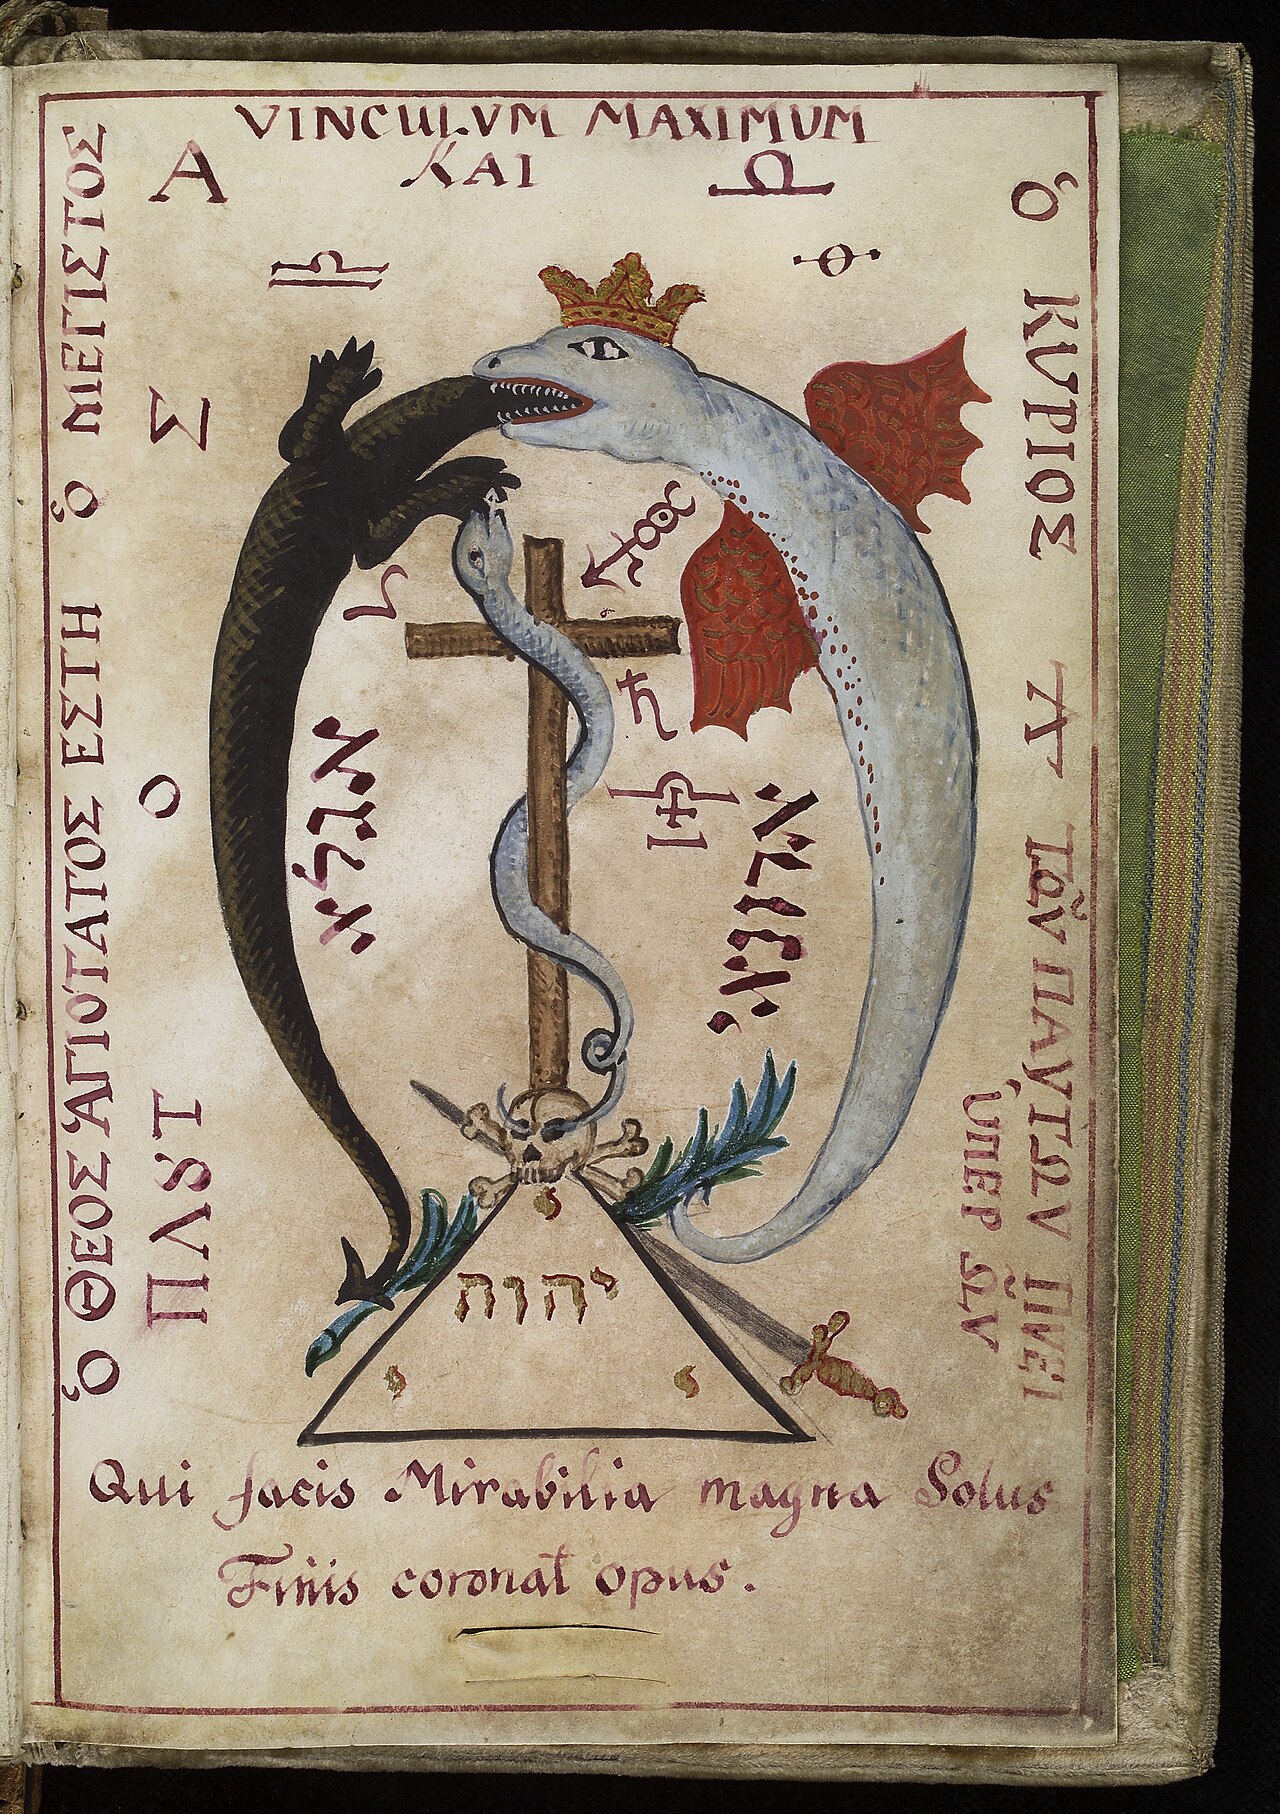 VINCULVM MAXIMUM
ΚΑΙ
Α
Σ
Ο
ὁ ΘΕΟΣ ἉΓΙΟΤΑΤΟΣ ΕΣΤΗ ὁ ΜΕΓΙΣΤΟΣ
ὁ ΚΥΡΙΟΣ
ΤΩΝ ΠΑΝΤΩΝ
ὙΠΕΡ ΩΝ
אגלא
יהוה
י
י
י
Qui facis Mirabilia magna Solus
Finis coronat opus.